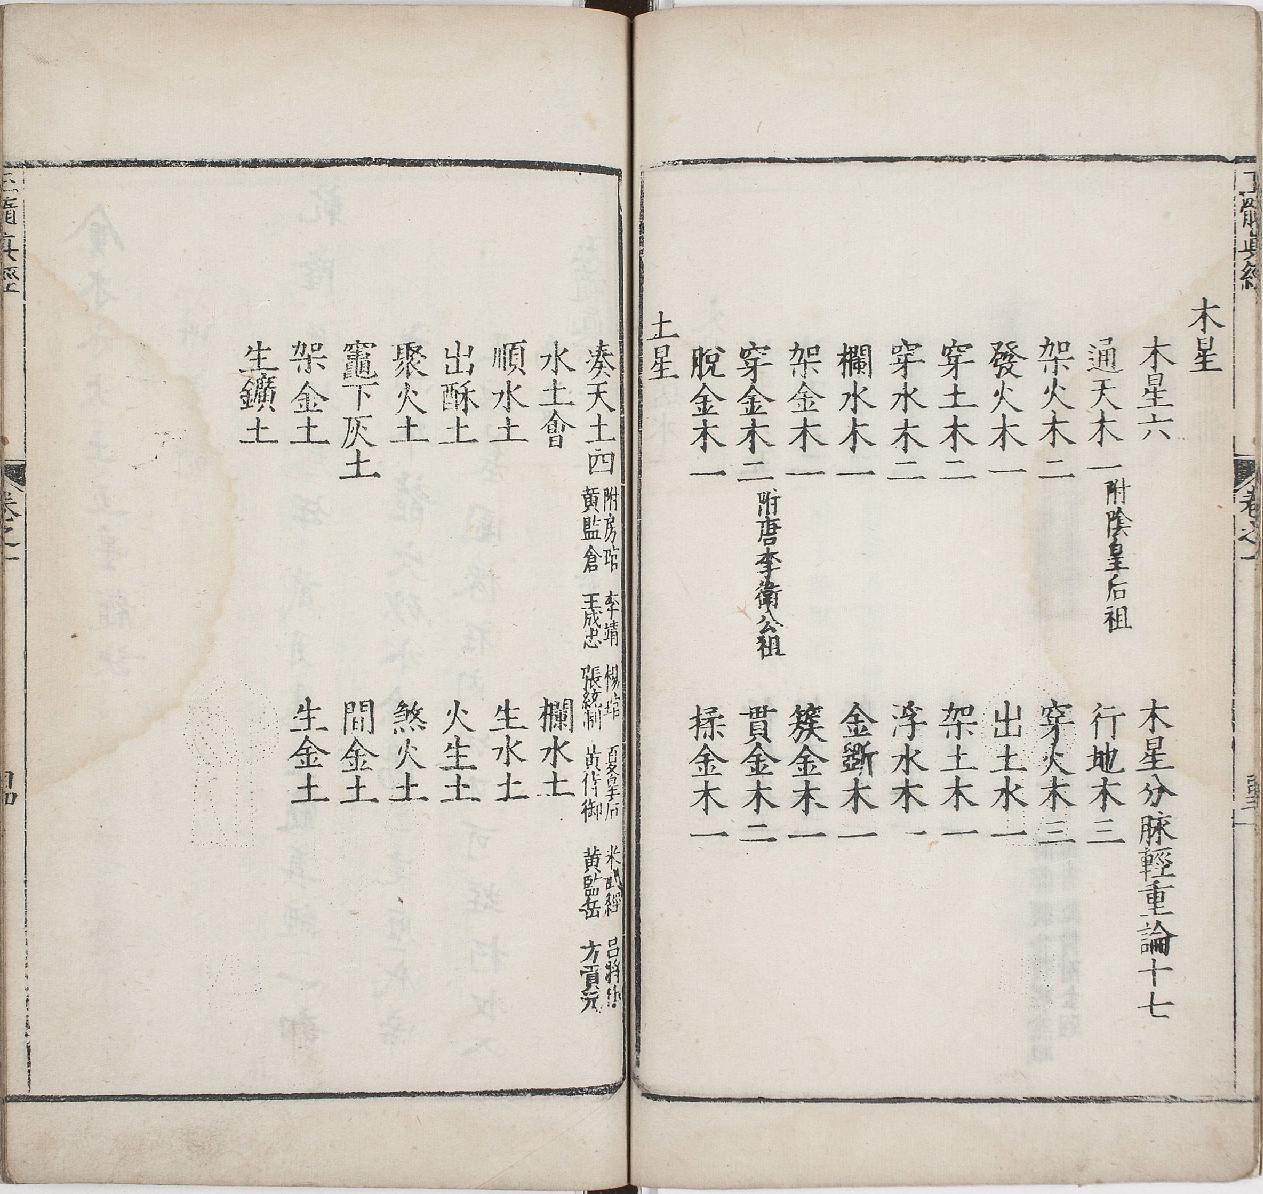 木星
木星六 木星分脉輕重論十七
通天木一附陰皇后祖 行地木三
架火木二 穿火木三
發火木一 出土水一
穿土木二 架土木一
穿水木二 浮水木一
欄水木一 金斷木一
架金木一 簇金木一
穿金木二附唐李衛公祖 貫金木二
脫金木一 揉金木一
土星
湊天土四 附房琯 李靖 楊琯 夏皇后 米武經 呂將 黃監倉 王成忠 張統制 黃侍御 黃監岳 方貢元
水土會 欄水土
順水土 生水土
出酥土 火生土
聚火土 煞火土
竈下灰土 間金土
架金土 生金土
生鑛土
玉髓真經
卷之一